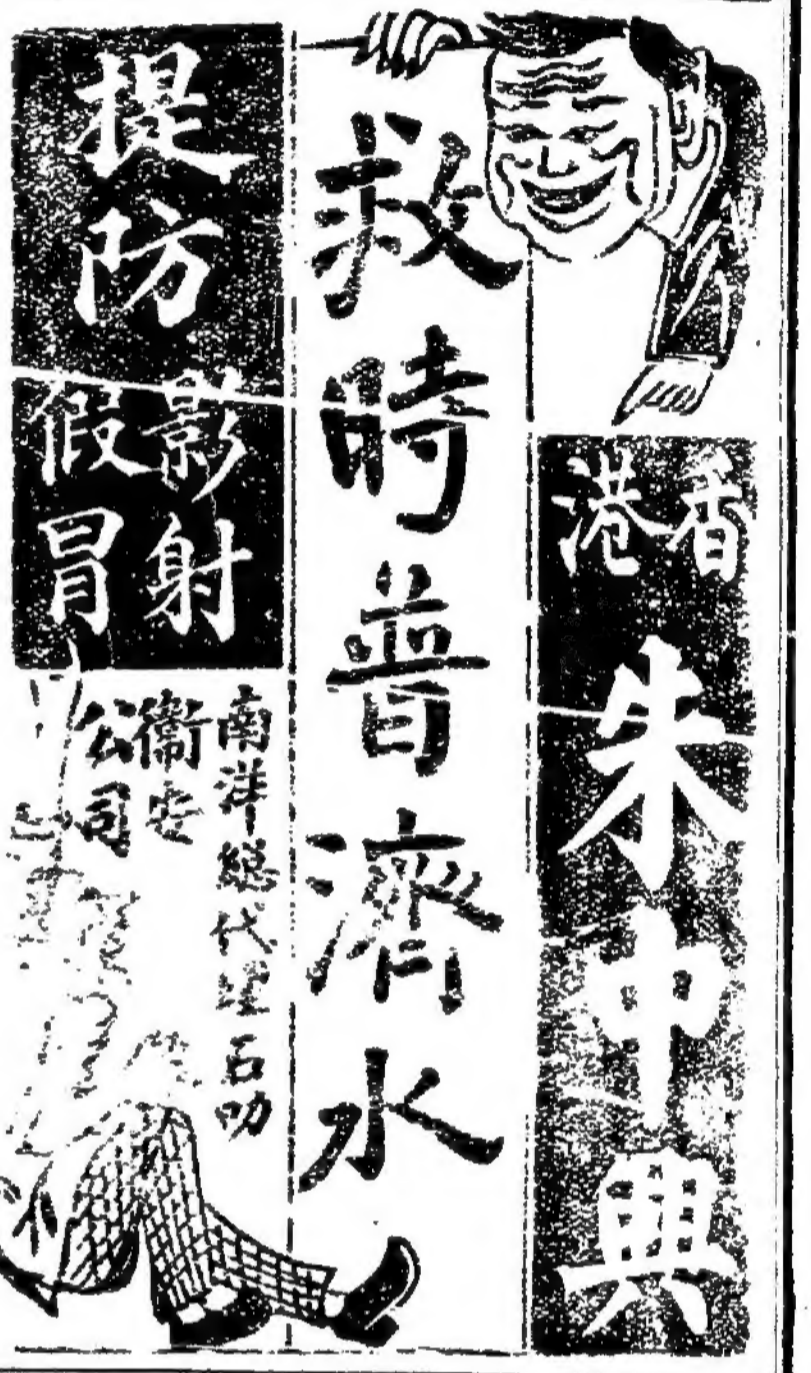 香港
朱中興
救時普濟水
提防
影射
假冒
南洋總代理石叻
衞安
公司